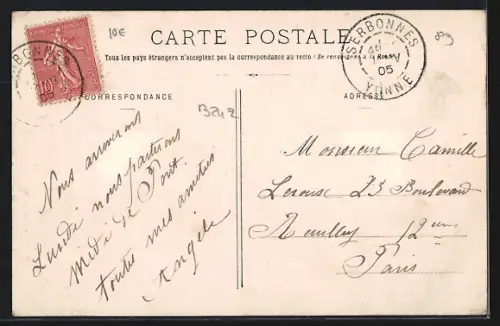 10€
CARTE POSTALE
Tous les pays étrangers n'acceptent pas la correspondance au recto
SERBONNES
05
YONNE
10c
CORRESPONDANCE
ADRESSE
B242
Nous arriverons
Lundi nous partirons
midi de Pont.
toutes mes amitiés
Angèle
Monsieur Camille
Lerouse 23 Boulevard
Reuilly 12eme
Paris